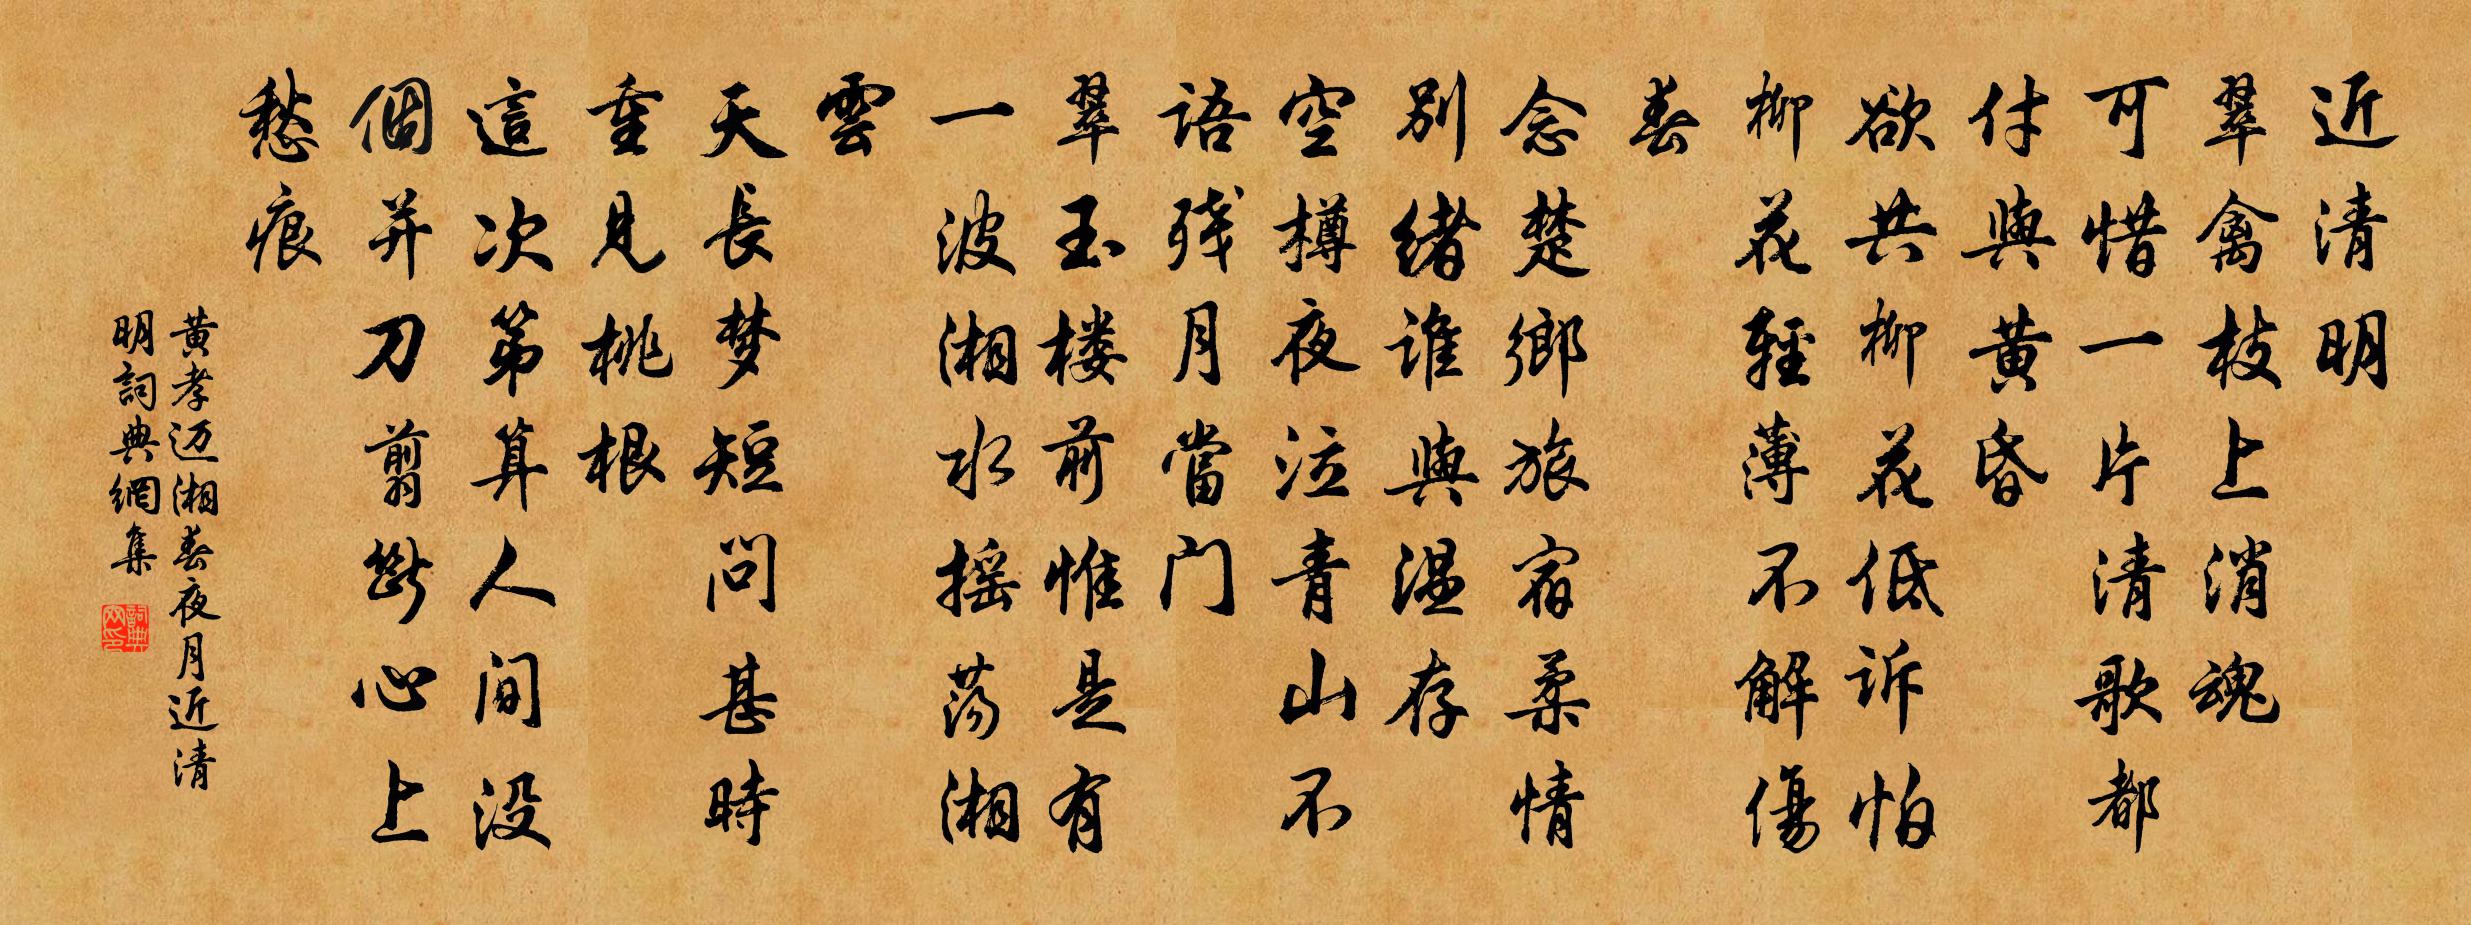 近清明
翠禽枝上消魂
可惜一片清歌都
付與黄昏
欲共柳花低诉怕
柳花輕薄不解傷
春
念楚鄉旅宿柔情
别緒谁與温存
空樽夜泣青山不
语残月當门
翠玉楼前惟是有
一波湘水摇荡湘
雲
天長梦短问甚時
重見桃根
這次第算人间没
個并刀剪斷心上
愁痕
黄孝迈湘春夜月近清
明詞典網集
詞典网印